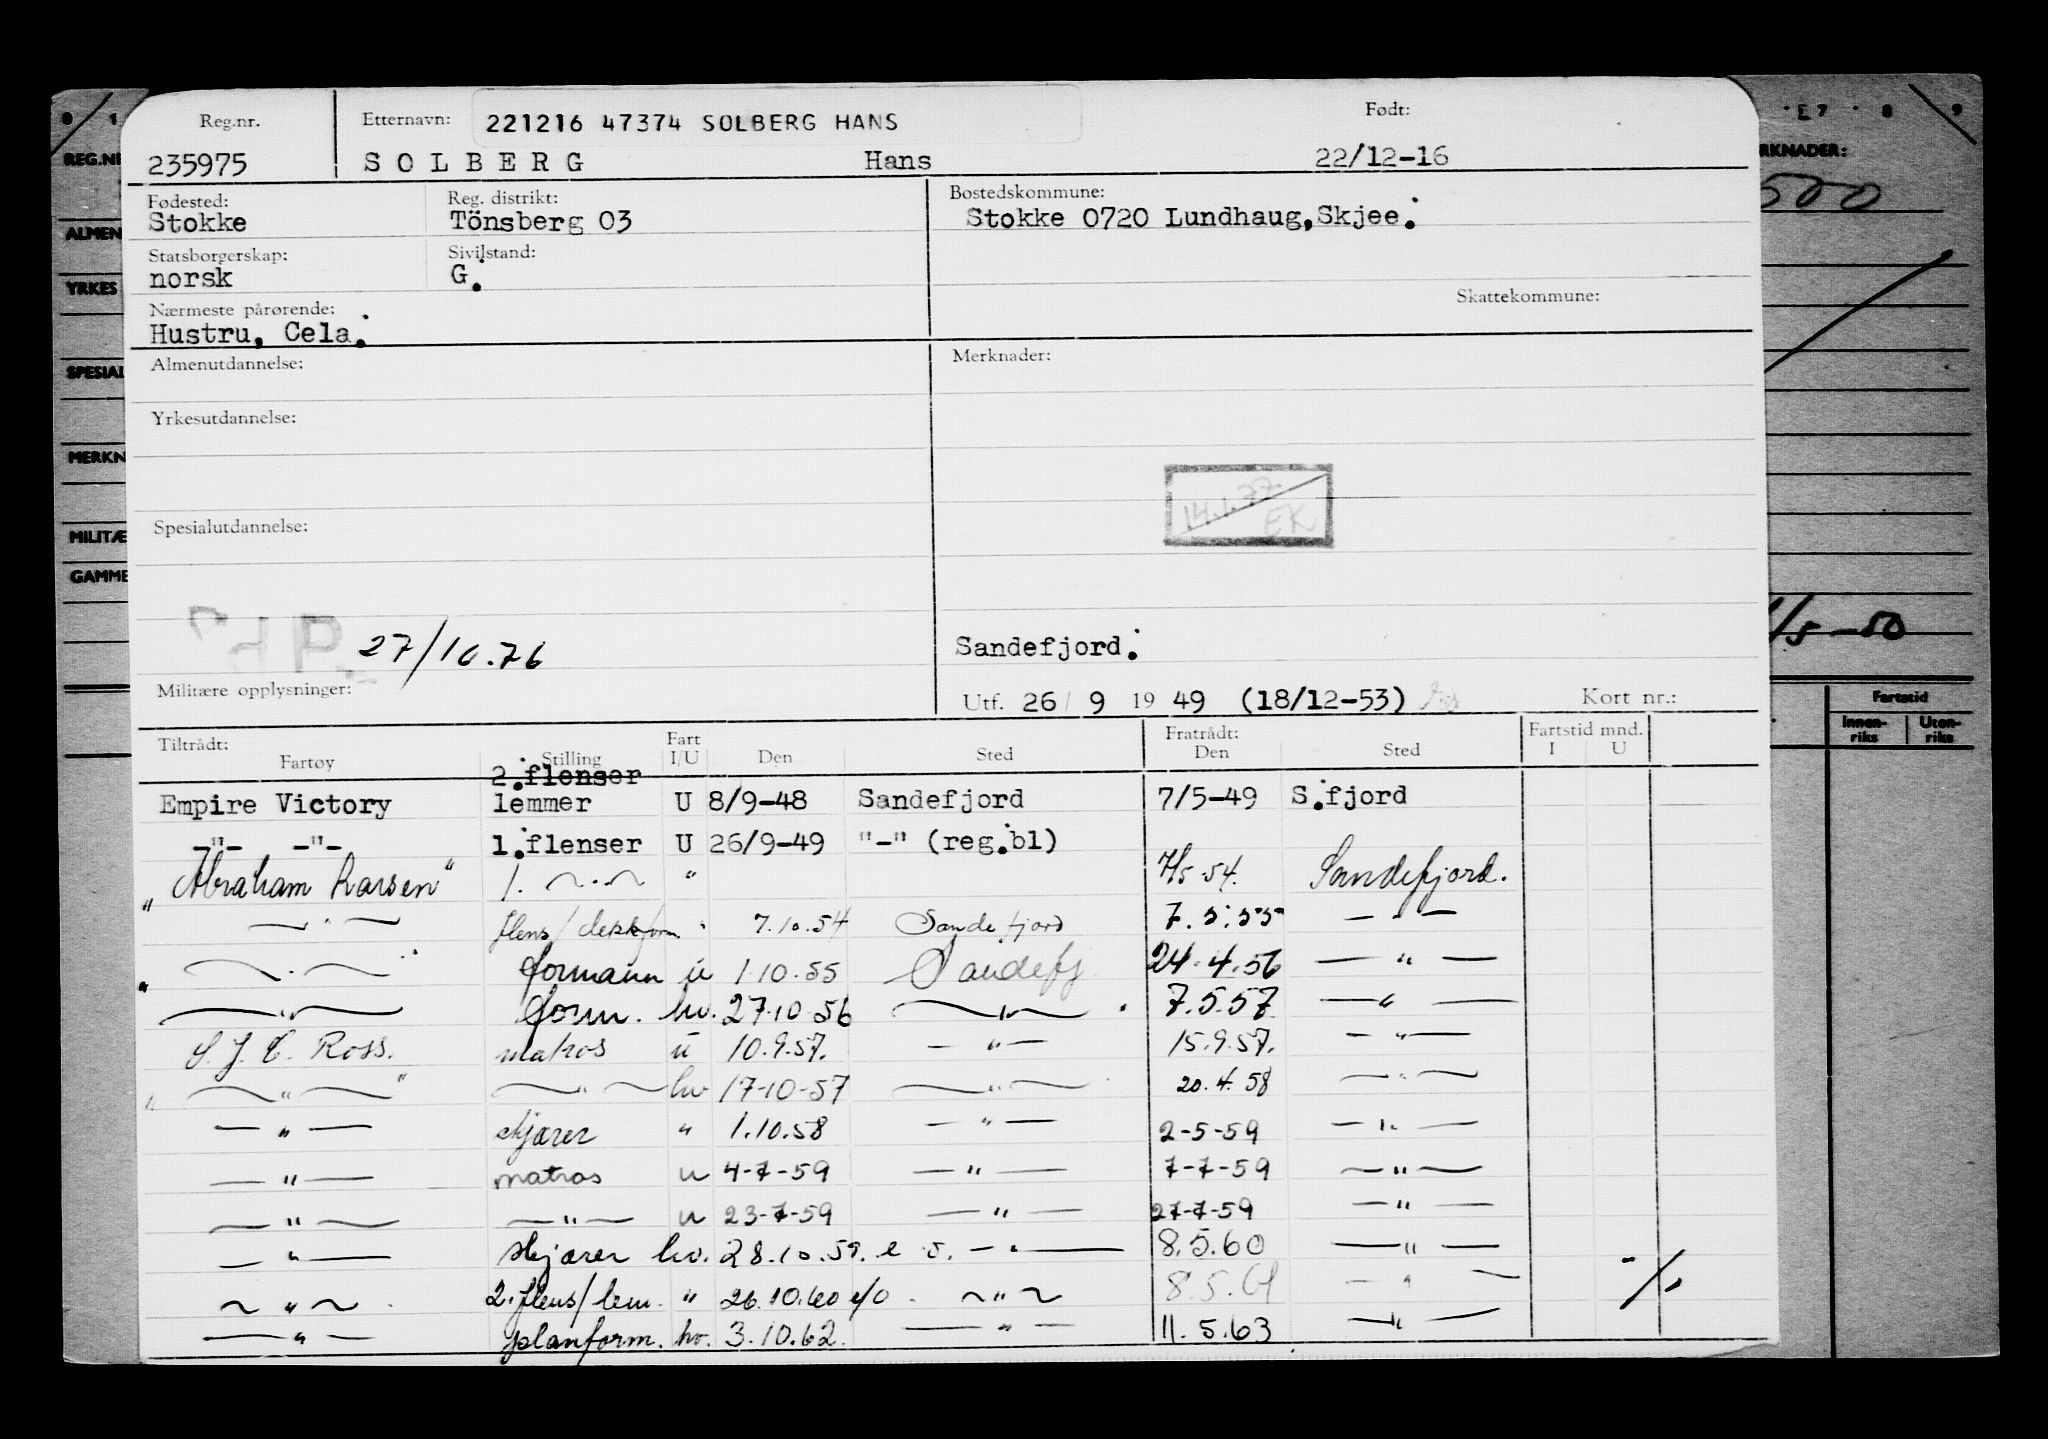 Reg.nr. Etternavn: 221216 47374 SOLBERG HANS Født:
235975 SOLBERG Hans 22/12-16
Fødested: Reg. distrikt: Bostedskommune:
Stokke Tönsberg 03 Stokke 0720 Lundhaug, Skjee.
Statsborgerskap: Sivilstand:
norsk G.
Nærmeste pårørende: Skattekommune:
Hustru, Cela.
Almenutdannelse: Merknader:
Yrkesutdannelse:
14.1.77
EK
Spesialutdannelse:
27/10.76
Sandefjord.
Militære opplysninger: Utf. 26/ 9 19 49 (18/12-53) Kort nr.:
Tiltrådt: Fratrådt: Fartstid mnd.
Fartøy Stilling Fart I/U Den Sted Den Sted I U
2.flenser
Empire Victory lemmer U 8/9-48 Sandefjord 7/5-49 S.fjord
-"- -"- 1.flenser U 26/9-49 "-" (reg.bl)
"Abraham Larsen" 1. -"- " 7/5-54. Sandefjord.
-"- flens/dekkform " 7.10.54 Sandefjord 7.5.55 -"-
-"- formann u 1.10.55 Sandefj 24.4.56 -"-
-"- form. hv. 27.10.56 -"- 7.5.57 -"-
S. J. C. Ross. matros u 10.9.57. -"- 15.9.57. -"-
-"- -"- hv 17-10-57 -"- 20.4.58 -"-
-"- skjærer " 1.10.58 -"- 2-5-59 -"-
-"- matros u 4-7-59 -"- 7-7-59 -"-
-"- -"- u 23-7-59 -"- 27-7-59 -"-
-"- skjærer hv. 28.10.59. -"- 8.5.60 -"-
-"- 2.flens/lem. " 26.10.60 e/o -"- 8.5.61 -"-
-"- planform. hv. 3.10.62. -"- 11.5.63 -"-
0 1
REG.N
ALMEN
YRKES
SPESIAL
MERKN
MILITÆ
GAMME
E7 8 9
RKNADER:
500
/5-50
Fartstid
Innen-
riks
Uten-
riks